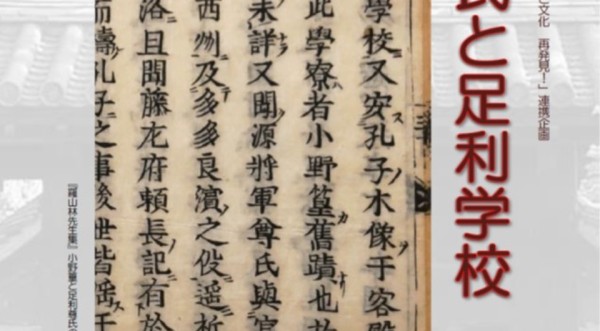 と文化 再発見!」連携企画
氏と足利学校
學校又安孔子木像于客殿
此學寮者小野篁舊蹟也故
未詳又聞源將軍尊氏與宮
西州及多多良濱之役遥祈
洛且聞藤左府頼長記有於
而禱孔子之事後世皆
『羅山林先生集』小野篁と足利尊氏